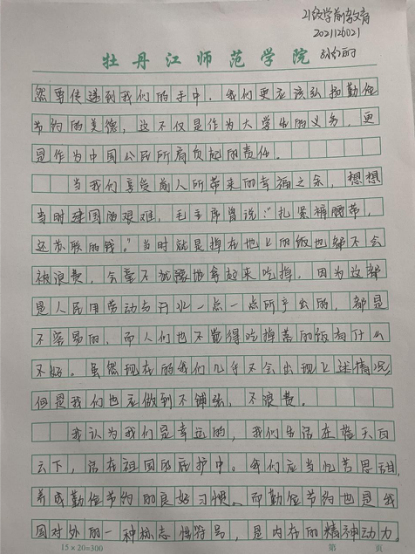 21级学前教育
2021126021
牡丹江师范学院
传递到我们的手中，我们更应该弘扬勤俭
节约的美德，这不仅是作为大学生的义务，更
是作为中国公民所肩负起的责任。
当我们享受前人所带来的幸福之余，想想
当时建国的艰难，毛主席曾说："扎紧裤腰带，
还苏联的钱。"当时就是掉在地上的饭也都不会
被浪费，会毫不犹豫地拿起来吃掉，因为这都
是人民用劳动与开业一点一点所予出的，都是
不容易的，而人们也不觉得吃掉落的饭有什么
不好。虽然现在的我们几乎不会出现上述情况
但是我们也应做到不铺张，不浪费。
我认为我们是幸运的，我们生活在蓝天白
云下，活在祖国的庇护中。我们应当忆苦思甜
养成勤俭节约的良好习惯。而勤俭节约也是我
国对外的一种标志性符号，是内在的精神动力
15×20=300
第 页